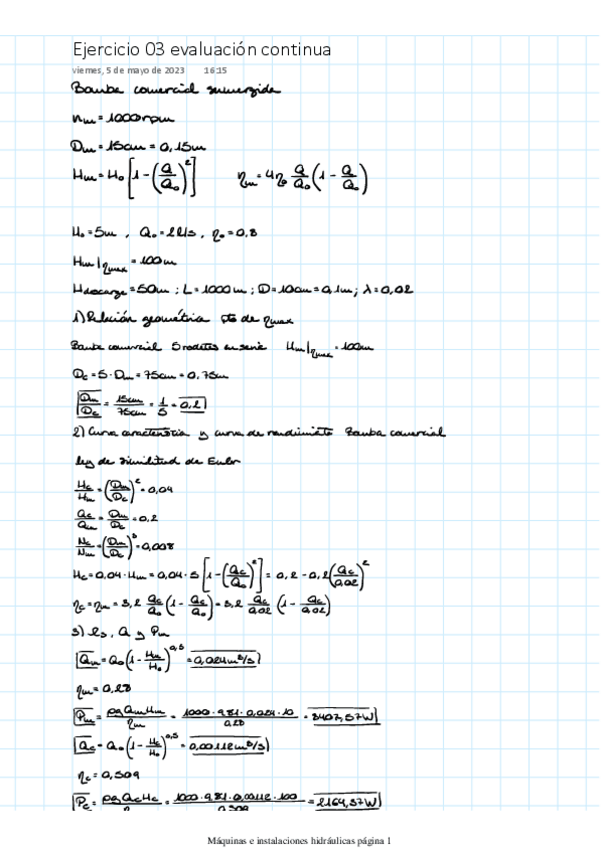 Ejercicio 03 evaluación continua
viernes, 5 de mayo de 2023 16:15
Bomba comercial sumergida
nm = 1000rpm
Dm = 15cm = 0,15m
Hm = H₀ [1 - (Q/Q₀)²] ηm = 4η₀ Q/Q₀ (1 - Q/Q₀)
H₀ = 5m, Q₀ = 2l/s, η₀ = 0,8
Hm|ηmax = 100m
Hdescarga = 50m ; L = 1000m ; D = 10cm = 0,1m ; λ = 0,02
1) Relación geométrica pto de ηmax
Bomba comercial 5 rodetes en serie Hm|ηmax = 100m
Dc = 5 · Dm = 75cm = 0,75m
Dm/Dc = 15cm/75cm = 1/5 = 0,2
2) Curva característica y curva de rendimiento Bomba comercial
ley de similitud de Euler
Hc/Hm = (Dm/Dc)² = 0,04
Qc/Qm = Dm/Dc = 0,2
Nc/Nm = (Dm/Dc)³ = 0,008
Hc = 0,04 · Hm = 0,04 · 5 [1 - (Qc/Q₀)²] = 0,2 - 0,2 (Qc/0,02)²
ηc = ηm = 3,2 Qc/Q₀ (1 - Qc/Q₀) = 3,2 Qc/0,02 (1 - Qc/0,02)
3) Q y Pm
Qm = Q₀ (1 - Hm/H₀)^0,5 = 0,024m³/s
ηm = 0,28
Pm = ρgQmHm/ηm = 1000 · 9,81 · 0,024 · 10/0,28 = 8407,57W
Qc = Q₀ (1 - Hc/H₀)^0,5 = 0,00112m³/s
ηc = 0,509
Pc = ρgQcHc/η = 1000 · 9,81 · 0,00112 · 100/0,509 = 2164,37W
Máquinas e instalaciones hidráulicas página 1